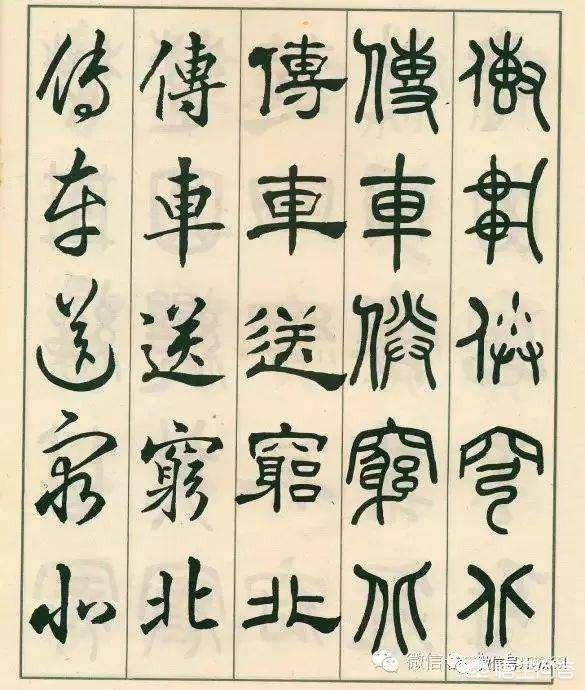 傳車送窮北
傳車送窮北
傳車送窮北
傳車送窮北
傳車送窮北
微信